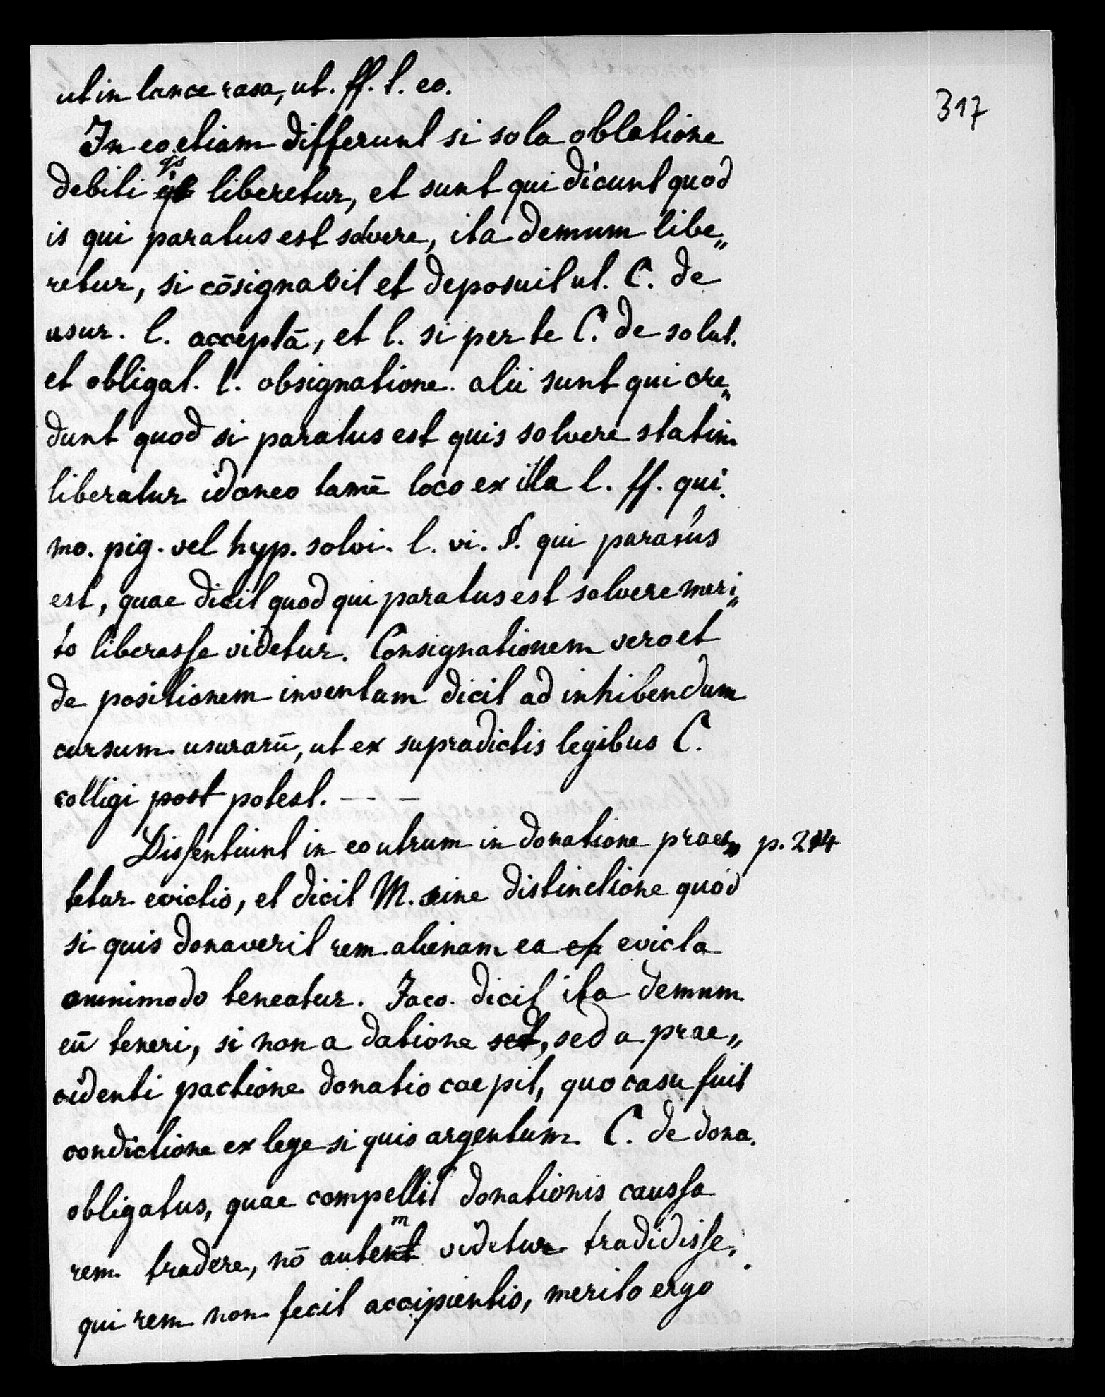 317
ut in lance rasa, ut. ff. l. eo.
In eo etiam differunt si sola oblatione
debiti qs liberetur, et sunt qui dicunt quod
is qui paratus est solvere, ita demum libe„
retur, si cōsignavit et deposuit ut. C. de
usur. l. acceptā, et l. si per te C. de solut.
et obligat. l. obsignatione. alii sunt qui cre„
dunt quod si paratus est quis solvere statim
liberatur idoneo tamē loco ex illa l. ff. qui.
mo. pig. vel hyp. solvi. l. vi. §. qui paratus
est, quae dicit quod qui paratus est solvere meri„
to liberasse videtur. Consignationem vero et
de positionem inventam dicit ad inhibendum
cursum usurarū, ut ex supradictis legibus C.
colligi post potest. — — —
Dissentiunt in eo utrum in donatione praes„ p. 214
tetur evictio, et dicit M. sine distinctione quod
si quis donaverit rem alienam ea evicta
omnimodo teneatur. Jaco. dicit ita demum
eū teneri, si non a datione sed, sed a prae„
cidenti pactione donatio caepit, quo casu fuit
condictione ex lege si quis argentum. C. de dona.
obligatus, quae compellit donationis caussa
rem tradere, nō autem videtur tradidisse,
qui rem non fecit accipientis, merito ergo